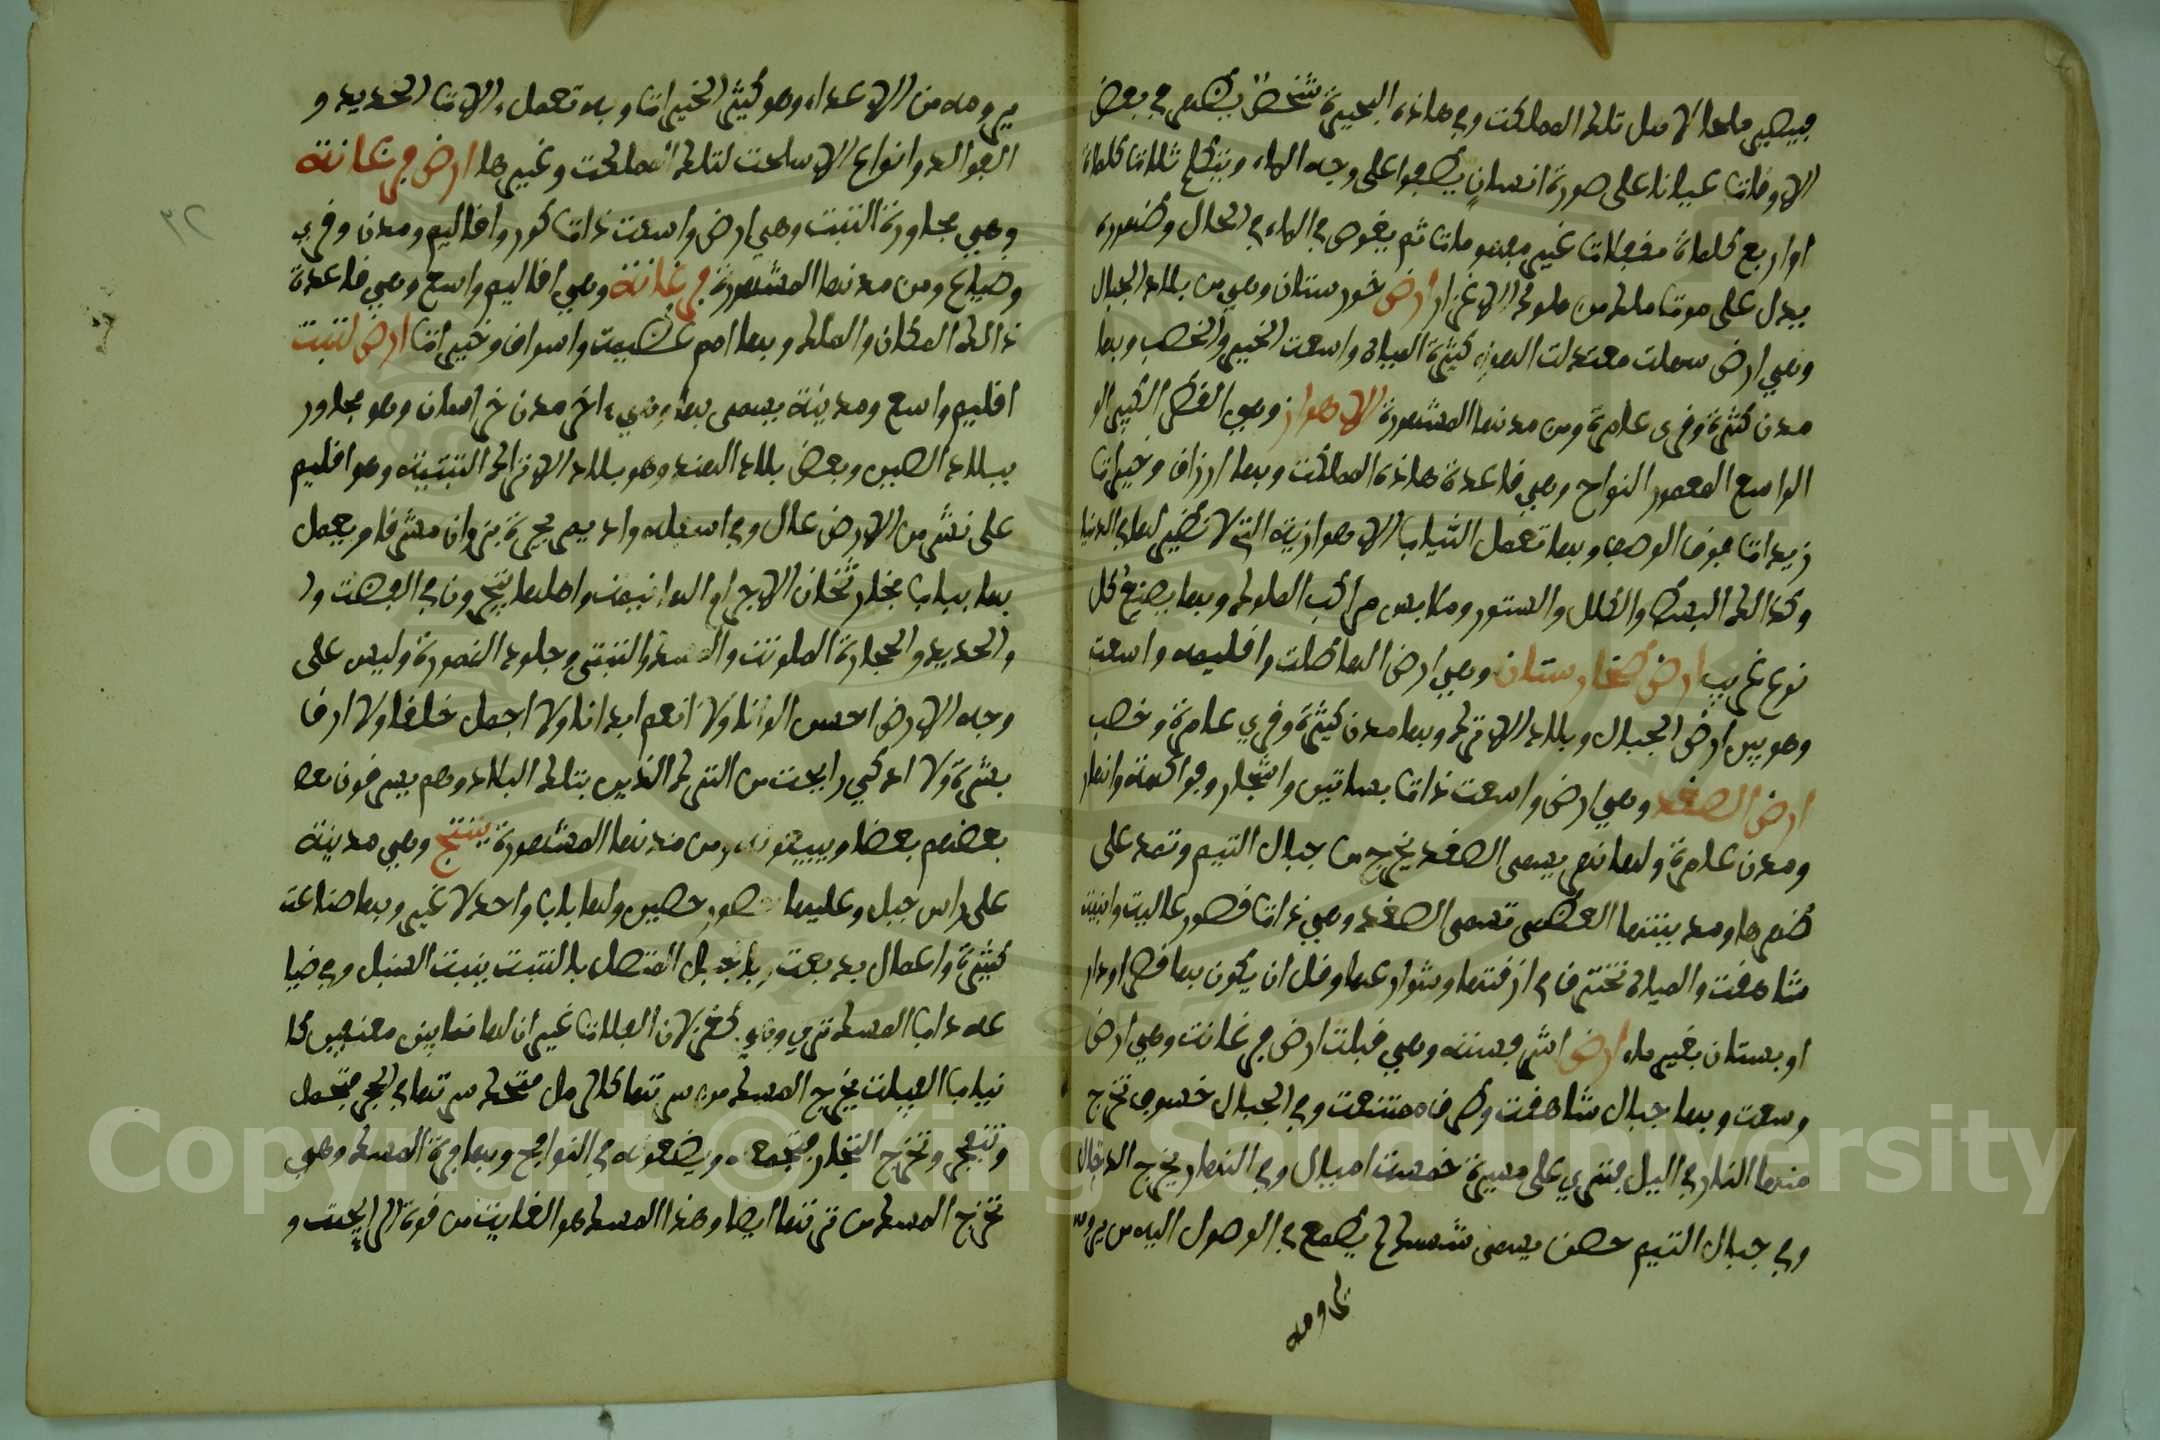 فيصير ملحا لاهل تلك المملكت وفي هاذه البحيرة شخص يظهر في بعض
الاوقات عيانا على صورة انسان يطفوا على وجه الماء ويتكلم ثلاث كلمات
او اربع كلمات مفعلات غير مفهومات ثم يغوص في الماء في الحال وظهوره
يدل على موت ملك من ملوك الاغزاز ارض خورستان وهي من بلاد الجبال
وهي ارض سهلت معتدلت الهواء كثيرة المياه واسعت الخير والخصب وبها
مدن كثيرة وقرى عامرة ومن مدنها المشهورة الاهواز وهي القطر الكبير ال
الواسع المعمور النواح وهي قاعدة هاذه المملكت وبها ارزاق وخيرات
زيدات فوق الوصف وبها تعمل الثياب الاهوازية التي لا نظير لها في الدنيا
وكذالك البسط والحلل والستور وملابس مراكب الملوك وبها يصنع كل
نوع غريب ارض طخارستان وهي ارض الهياطلت واقليمه واسعت
وهو بين ارض الجبال وبلاد الاترك وبها مدن كثيرة وقرى عامرة وخصب
ارض الصغد وهي ارض واسعت ذات بساتين واشجار وفواكه وانهار
ومدن عامرة ولها نهر يسمى الصغد يخرج من جبال التيم وتمد على
ظهرها ومدينتها العظمى تسمى الصغد وهي ذات قصور عاليت وابنيت
شاهقت والمياه تخترق في ازقتها وشوارعها وقل ان يكون بها قصر او دار
او بستان بغير ماء ارض اشروسنه وهي قبلت ارض فرغانت وهي ارض
وسعت وبها جبال شاهقت وطرق ممتنعت وفي الجبال خسوف تخرج
منها النار في اليل فترى على مسيرة خمست اميال وفي النهار يخرج الدخان
وفي جبال التيم حصن يسمى شمسك لا يطمع في الوصول اليه من يرو
ومه
يرومه من الاعداء وهو كثير الخيرات وبه تعمل الات الحديد و
الفوالد وانواع الاسلحت لتلك المملكت وغيرها ارض فرغانة
وهي مجاورة التبت وهي ارض واسعت ذات كور واقاليم ومدن وقرى
وضياع ومن مدنها المشهورة فرغانة وهي اقاليم واسع وهي قاعدة
ذالك المكان والملك وبها امم عظيمت واسواق وخيرات ارض لتبت
اقليم واسع ومدينة يسمى بها وهي ءاخر مدن خراسان وهو مجاور
ببلاد الصين وبعض بلاد الهند وهو بلاد الاتراك التبتية وهو اقليم
على نشر من الارض عال وفي اسفله واد يمر بحيرة بزوان مشرقا ويعمل
بها ثياب ثخان الاجرام الهانيمت واهلها يتجرون في الفضت و
والحديد والحجارة الملونت والمسك والتبتي وجلود النمورة وليس على
وجه الارض احسن الوانا ولا انعم ابدانا ولا اجمل خلقا ولا ارق
بشرة ولا اذكى رايحت من الترك الذين بتلك البلاد وهم يسرقون بعه
بعضهم بعضا ويبيعونه ومن مدنها المشهورة بنتج وهي مدينة
على راس جبل وعليها صور حصين ولها باب واحد لا غير وبها صناعت
كثيرة واعمال بديعت وبالجبل المتصل بالتبت ينبت السنبل وفي ضيا
عه داب المسك ترى وهي كغزلان الفلات غير ان لها نابين معنيين كا
نياب الفيلت يخرج المسك من سرتها كالدمل فتحك سرتها في الحجر فتحمل
وتنفجر وتخرج التجار فتجمعه ويضعونه في النوافج وبها فرة المسك وهي
تخرج المسك من سرتها ايضا وهذا المسك هو الغايت من قوة الرايحت و
Copyright © King Saud University